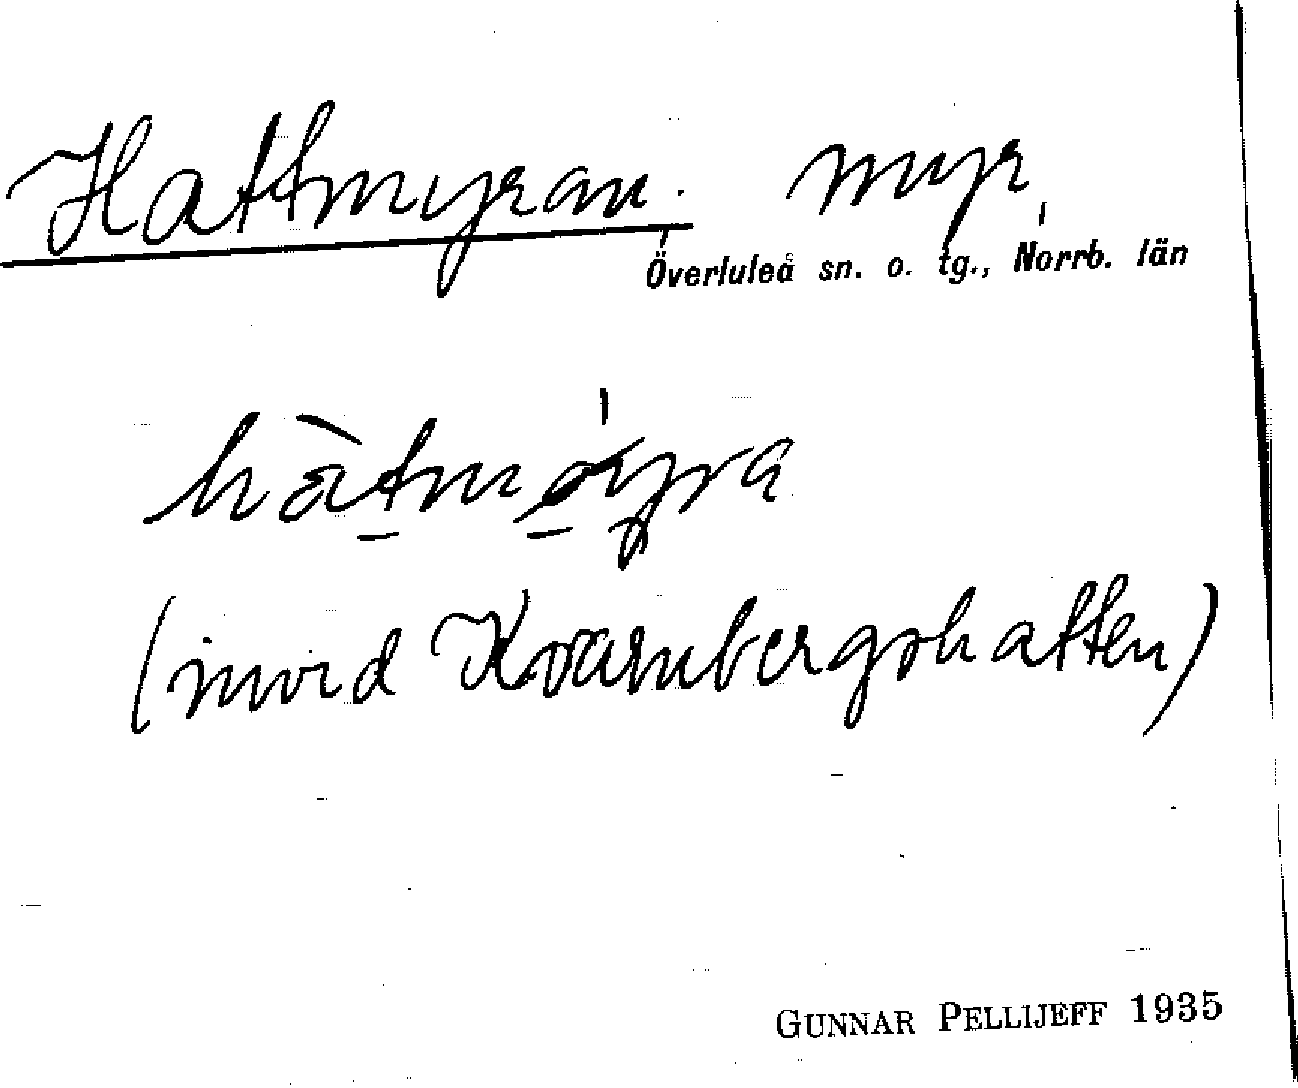 Hattmyran. myr,
Överluleå sn. o. tg., Norrb. län
(invid Kvarnbergshatten)
GUNNAR PELLIJEFF 1935